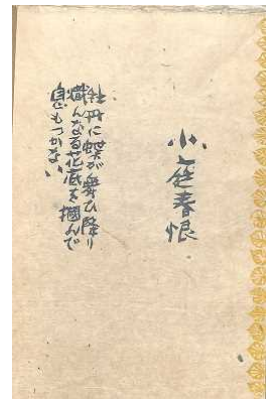 小庭春恨
牡丹に蝶が舞ひ降り
熾んなる花底を掴んで
息もつかない